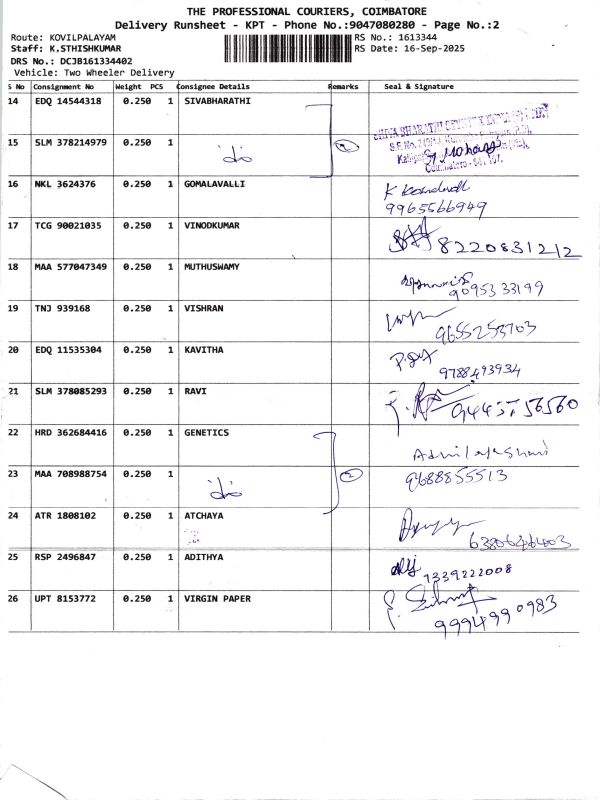 THE PROFESSIONAL COURIERS, COIMBATORE
Delivery Runsheet - KPT - Phone No.:9047080280 - Page No.:2
Route: KOVILPALAYAM RS No.: 1613344
Staff: K.STHISHKUMAR RS Date: 16-Sep-2025
DRS No.: DCJB161334402
Vehicle: Two Wheeler Delivery
S No Consignment No Weight PCS Consignee Details Remarks Seal & Signature
14 EDQ 14544318 0.250 1 SIVABHARATHI
15 SLM 378214979 0.250 1 do 2
16 NKL 3624376 0.250 1 GOMALAVALLI
9965566949
17 TCG 90021035 0.250 1 VINODKUMAR 8220831212
18 MAA 577047349 0.250 1 MUTHUSWAMY
9095333199
19 TNJ 939168 0.250 1 VISHRAN
9655253703
20 EDQ 11535304 0.250 1 KAVITHA
9788493934
21 SLM 378085293 0.250 1 RAVI
22 HRD 362684416 0.250 1 GENETICS
23 MAA 708988754 0.250 1 do 2 9688855513
24 ATR 1808102 0.250 1 ATCHAYA
25 RSP 2496847 0.250 1 ADITHYA
7339222008
26 UPT 8153772 0.250 1 VIRGIN PAPER
9994990983